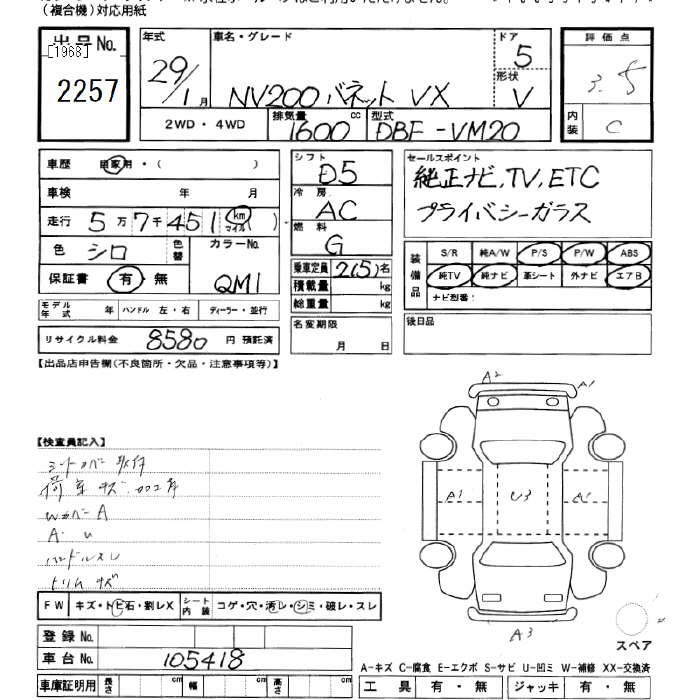 (複合機)対応用紙
出品No.
[1968]
2257
年式
29/1月
車名・グレード
NV200 バネット VX
ドア
5
形状
V
評価点
3.5
内装
C
2WD・4WD
排気量
1600cc
型式
DBF-VM20
車歴 自家用・( )
車検 年 月
走行 5万7千451 km マイル( )
色 シロ 色替
カラーNo. QM1
保証書 有・無
モデル年式 年 ハンドル 左・右 ディーラー・並行
リサイクル料金 8580 円 預託済
シフト
D5
冷房
AC
燃料
G
乗車定員 2(5)名
積載量 kg
総重量 kg
名変期限
月 日
セールスポイント
純正ナビ,TV,ETC
プライバシーガラス
装備品
S/R 純A/W P/S P/W ABS
純TV 純ナビ 革シート 外ナビ エアB
ナビ型番:
後日品
【出品店申告欄(不良箇所・欠品・注意事項等)】
【検査員記入】
シートカバー取付
荷室キズ・
A・U
ハンドルスレ
トリムキズ
A2
A1
A1
U3
A3
スペア
FW キズ・トビ石・割レX
シート内装 コゲ・穴・汚レ・シミ・破レ・スレ
登録No.
車台No. 105418
車庫証明用 長さ cm 幅 cm 高さ cm
A-キズ C-腐食 E-エクボ S-サビ U-凹ミ W-補修 XX-交換済
工具 有・無 ジャッキ 有・無